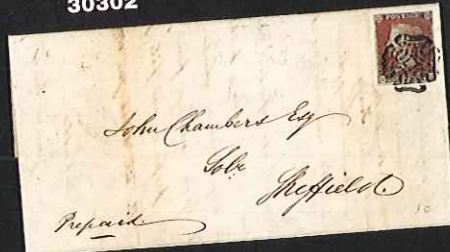 30302
POSTAGE
John Chambers Esq
Solr
Sheffield
Prepaid